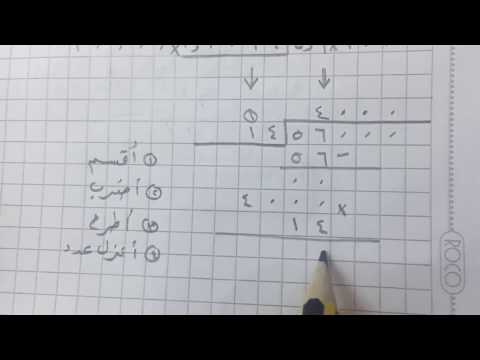 ١ ٤ ٠ ٠ ٠
١٤ ٥٦٠٠٠
١ أقسم ٥٦ -
٢ أضرب ٠ ٠
٤٠٠٠ ×
٣ أطرح ١٤
٤ أنزل عدد
ROCO